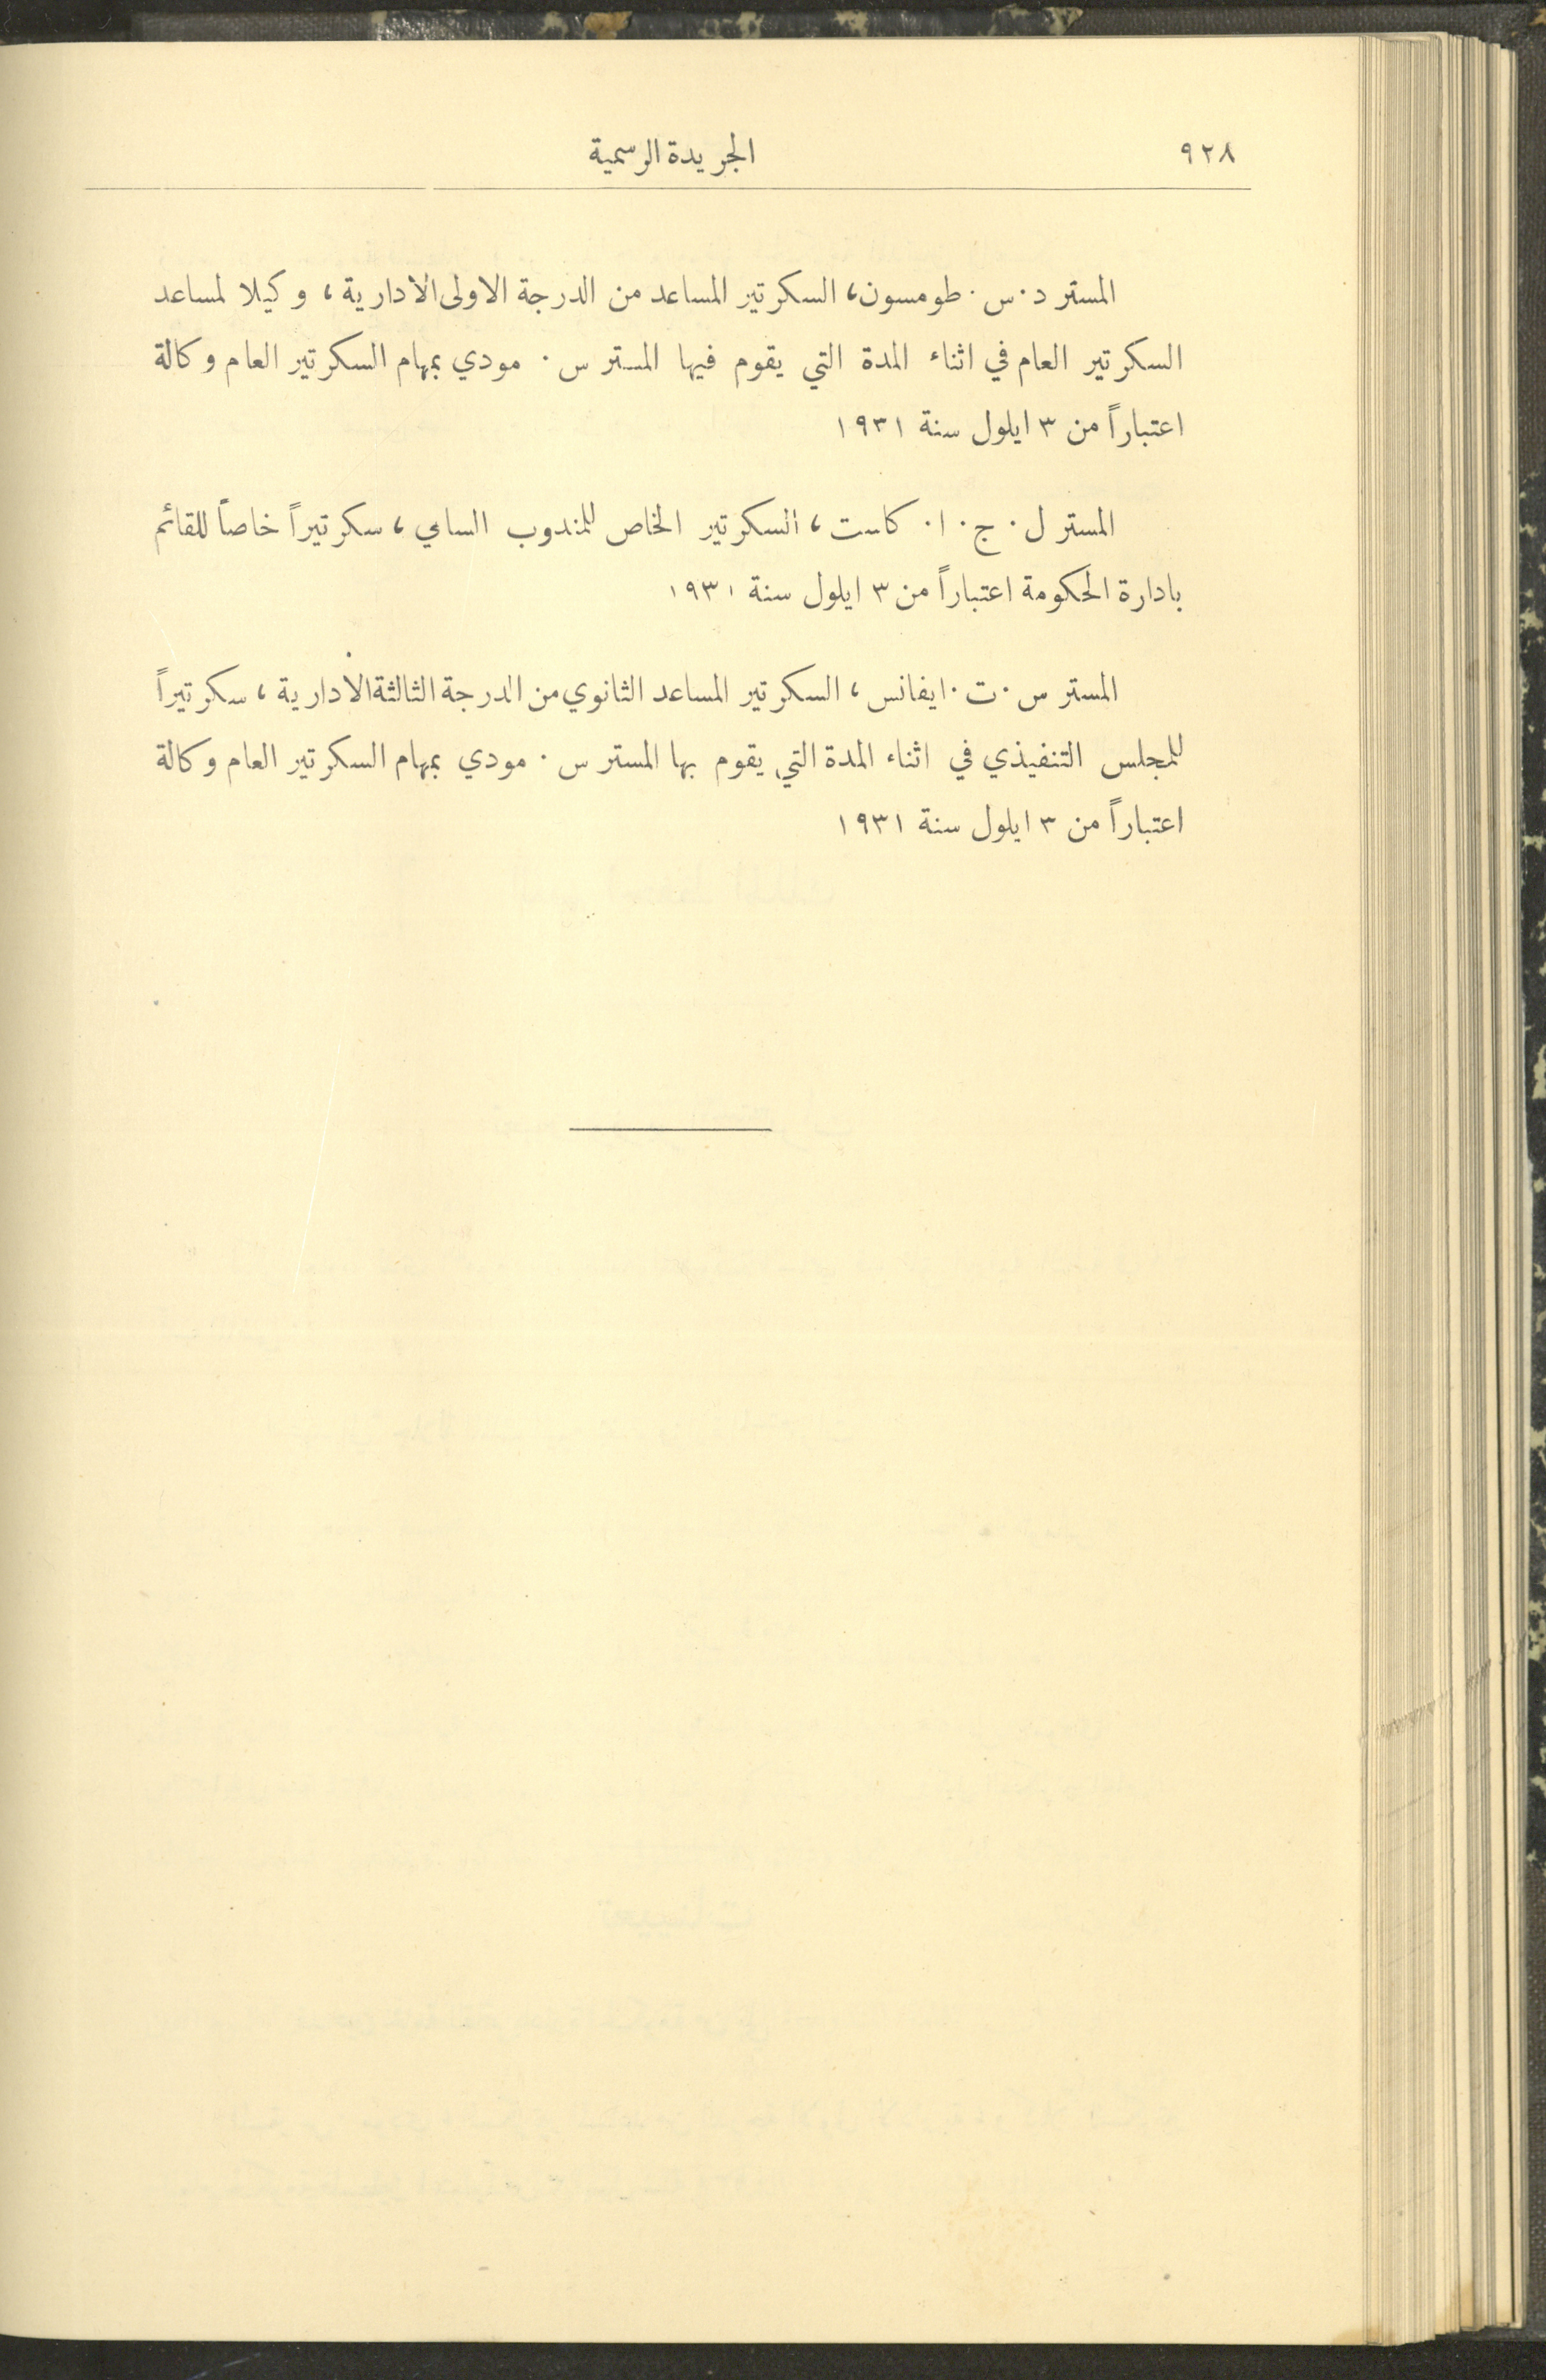 ٩٢٨
الجريدة الرسمية
المستر د. س. طومسون، السكرتير المساعد من الدرجة الاولى الادارية، وكيلا لمساعد
السكرتير العام في اثناء المدة التي يقوم فيها المستر س. مودي بمهام السكرتير العام وكالة
اعتباراً من ٣ ايلول سنة ١٩٣١
المستر ل. ج. ا. كاست، السكرتير الخاص للمندوب السامي، سكرتيراً خاصاً للقائم
بادارة الحكومة اعتباراً من ٣ ايلول سنة ١٩٣١
المستر س. ت. ايفانس، السكرتير المساعد الثانوي من الدرجة الثالثة الادارية، سكرتيراً
للمجلس التنفيذي في اثناء المدة التي يقوم بها المستر س. مودي بمهام السكرتير العام وكالة
اعتباراً من ٣ ايلول سنة ١٩٣١